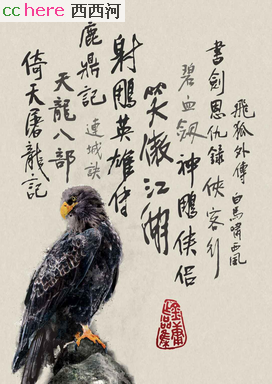 cchere 西西河
飛狐外傳
白馬嘯西風
書劍恩仇錄
俠客行
碧血劍
神雕俠侶
笑傲江湖
射雕英雄傳
連城訣
鹿鼎記
天龍八部
倚天屠龍記